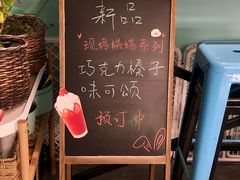 新品
现烤烘焙系列
巧克力榛子
味可颂
预订中